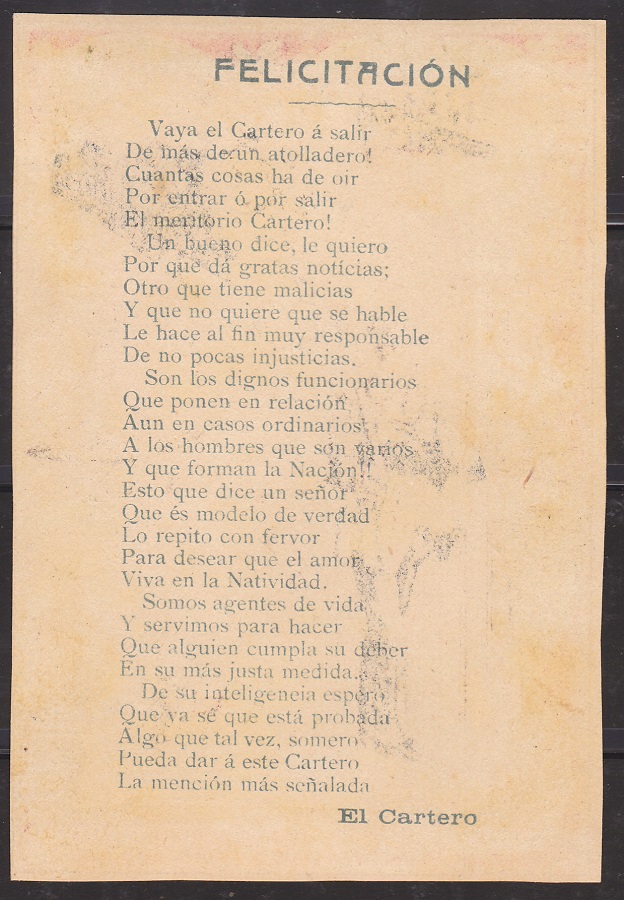 FELICITACIÓN
Vaya el Cartero á salir
De más de un atolladero!
Cuantas cosas ha de oir
Por entrar ó por salir
El meritorio Cartero!
Un bueno dice, le quiero
Por que dá gratas notícias;
Otro que tiene malicias
Y que no quiere que se hable
Le hace al fin muy responsable
De no pocas injusticias.
Son los dignos funcionarios
Que ponen en relación
Aun en casos ordinarios
A los hombres que son varios
Y que forman la Nación!!
Esto que dice un señor
Que és modelo de verdad
Lo repito con fervor
Para desear que el amor
Viva en la Natividad.
Somos agentes de vida
Y servimos para hacer
Que alguien cumpla su deber
En su más justa medida.
De su inteligencia espero
Que ya se que está probada
Algo que tal vez, somero
Pueda dar á este Cartero
La mención más señalada
El Cartero